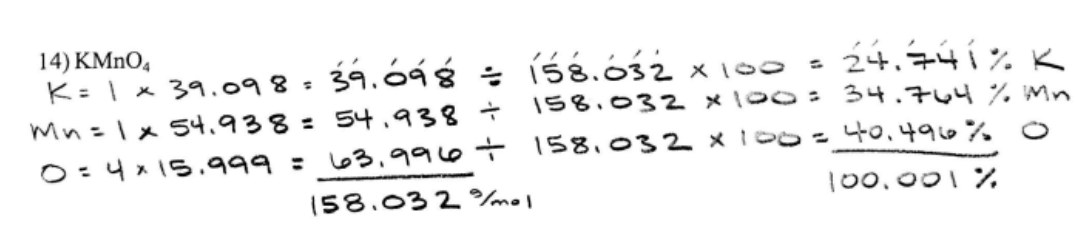 14) KMnO₄
K = 1 x 39.098 = 39.098 ÷ 158.032 x 100 = 24.741% K
Mn = 1 x 54.938 = 54.938 ÷ 158.032 x 100 = 34.764% Mn
O = 4 x 15.999 = 63.996 ÷ 158.032 x 100 = 40.496% O
158.032 g/mol 100.001%